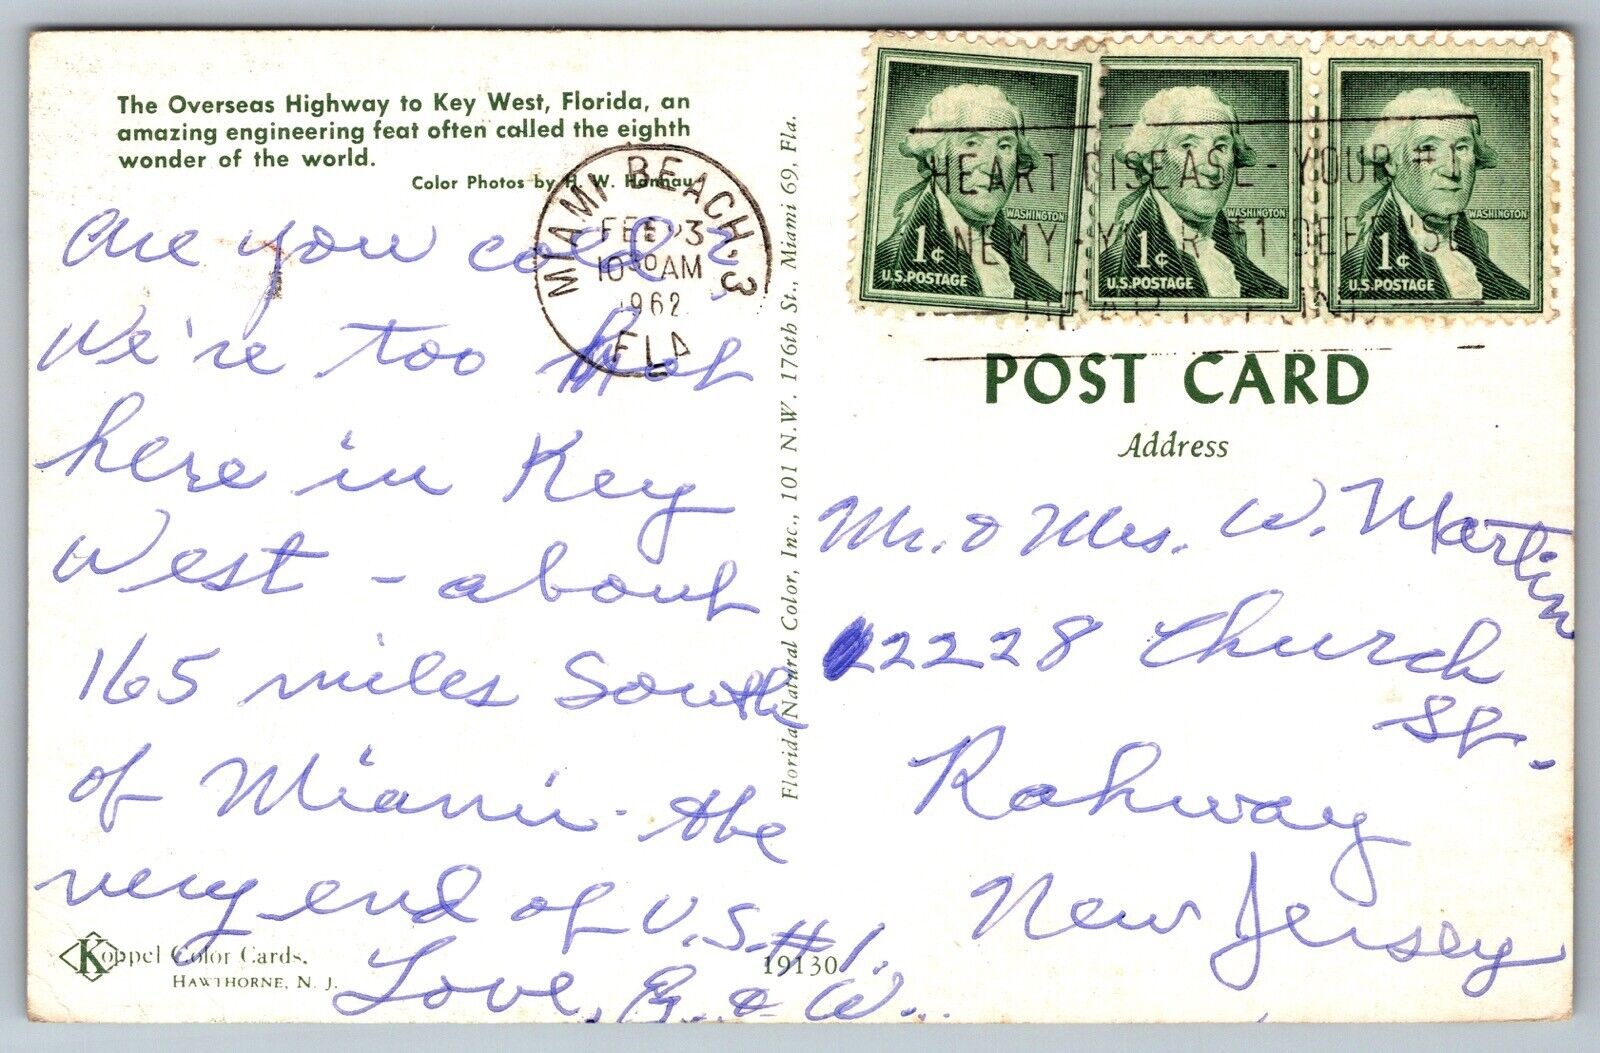 The Overseas Highway to Key West, Florida, an
amazing engineering feat often called the eighth
wonder of the world.
Color Photos by H. W. Hannau
Are you cold?
We're too hot
here in Key
West - about
165 miles South
of Miami - the
very end of U.S. #1.
Love, G. & W..
Koppel Color Cards,
HAWTHORNE, N. J.
19130
MIAMI BEACH 3
FEB 3
10 30 AM
1962
FLA
Florida Natural Color, Inc., 101 N.W. 176th St., Miami 69, Fla.
HEART DISEASE - YOUR #1
ENEMY - YOUR #1 DEFENSE
HEART FUND
WASHINGTON
1¢
U.S. POSTAGE
WASHINGTON
1¢
U.S. POSTAGE
WASHINGTON
1¢
U.S. POSTAGE
POST CARD
Address
Mr. & Mrs. W. Martin
2228 Church
St.
Rahway
New Jersey